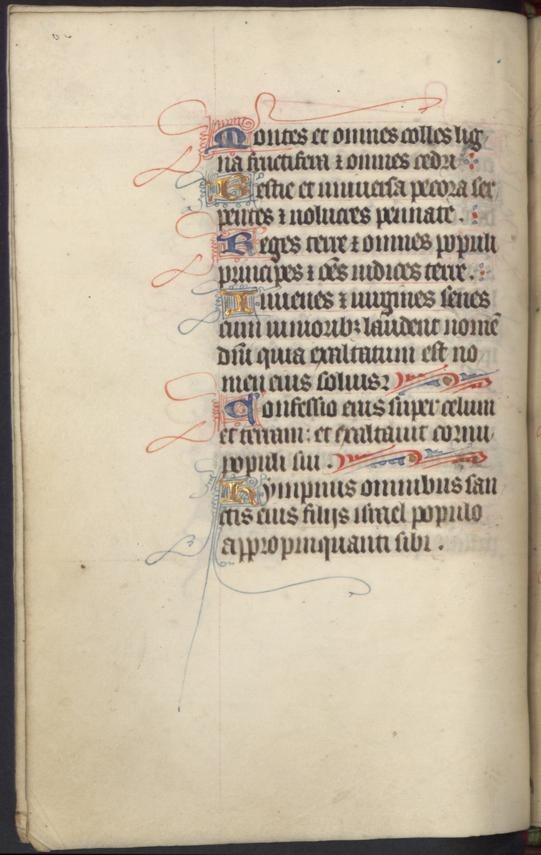 Montes et omnes colles lig
na fructifera ⁊ omnes cedri
Bestie et uniuersa pecora ser
pentes ⁊ uolucres pennate.
Reges terre ⁊ omnes populi
principes ⁊ oēs iudices terre.
Iuuenes ⁊ uirgines senes
cum iunioribꝫ laudent nomē
dn̄i quia exaltatum est no
men eius solius
Confessio eius super celum
et terram: et exaltauit cornu
populi sui.
Hympnus omnibus san
ctis eius filijs israel populo
appropinquanti sibi.